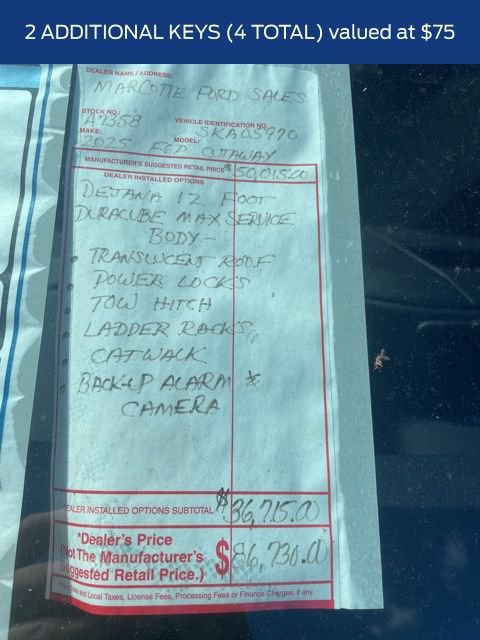 2 ADDITIONAL KEYS (4 TOTAL) valued at $75
DEALER NAME/ADDRESS:
MARCOTTE FORD SALES
STOCK NO.:
VEHICLE IDENTIFICATION NO.
A7358
SKA05970
MAKE:
MODEL:
2025 CUTAWAY
MANUFACTURER'S SUGGESTED RETAIL PRICE $ 50,015.00
DEALER INSTALLED OPTIONS
DEJANA 12 FOOT
DURACUBE MAX SERVICE
BODY -
• TRANSLUCENT ROOF
• POWER LOCKS
• TOW HITCH
• LADDER RACKS
• CATWALK
• BACK-UP ALARM &
CAMERA
DEALER INSTALLED OPTIONS SUBTOTAL $36,715.00
*Dealer's Price
(Not The Manufacturer's
Suggested Retail Price.)
$86,730.00
and Local Taxes, License Fees, Processing Fees or Finance Charges, if any.